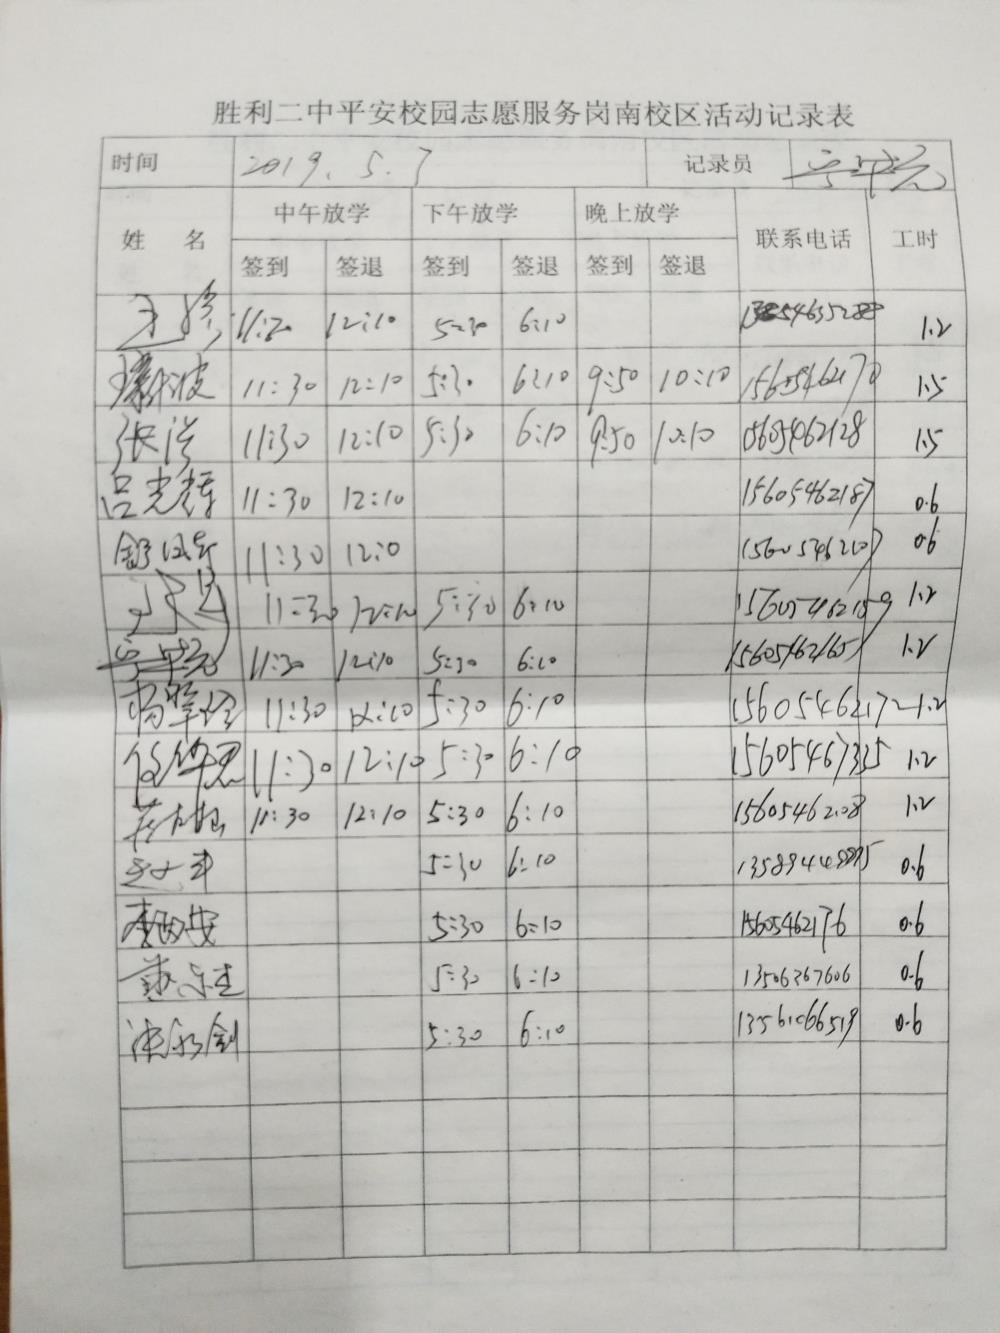 胜利二中平安校园志愿服务岗南校区活动记录表
时间 2019.5.7 记录员
姓 名 中午放学 下午放学 晚上放学 联系电话 工时
签到 签退 签到 签退 签到 签退
11:30 12:10 5:30 6:10 1.2
波 11:30 12:10 5:30 6:10 9:50 10:10 15605462170 1.5
张洪 11:30 12:10 5:30 6:10 9:50 10:10 15605462128 1.5
吕光辉 11:30 12:10 15605462187 0.6
11:30 12:10 15605462107 0.6
11:30 12:10 5:30 6:10 15605462159 1.2
11:30 12:10 5:30 6:10 15605462165 1.2
杨翠玲 11:30 12:10 5:30 6:10 15605462172 1.2
11:30 12:10 5:30 6:10 15605467335 1.2
11:30 12:10 5:30 6:10 15605462108 1.2
5:30 6:10 0.6
李 安 5:30 6:10 15605462176 0.6
5:30 6:10 13506367606 0.6
5:30 6:10 13561066519 0.6